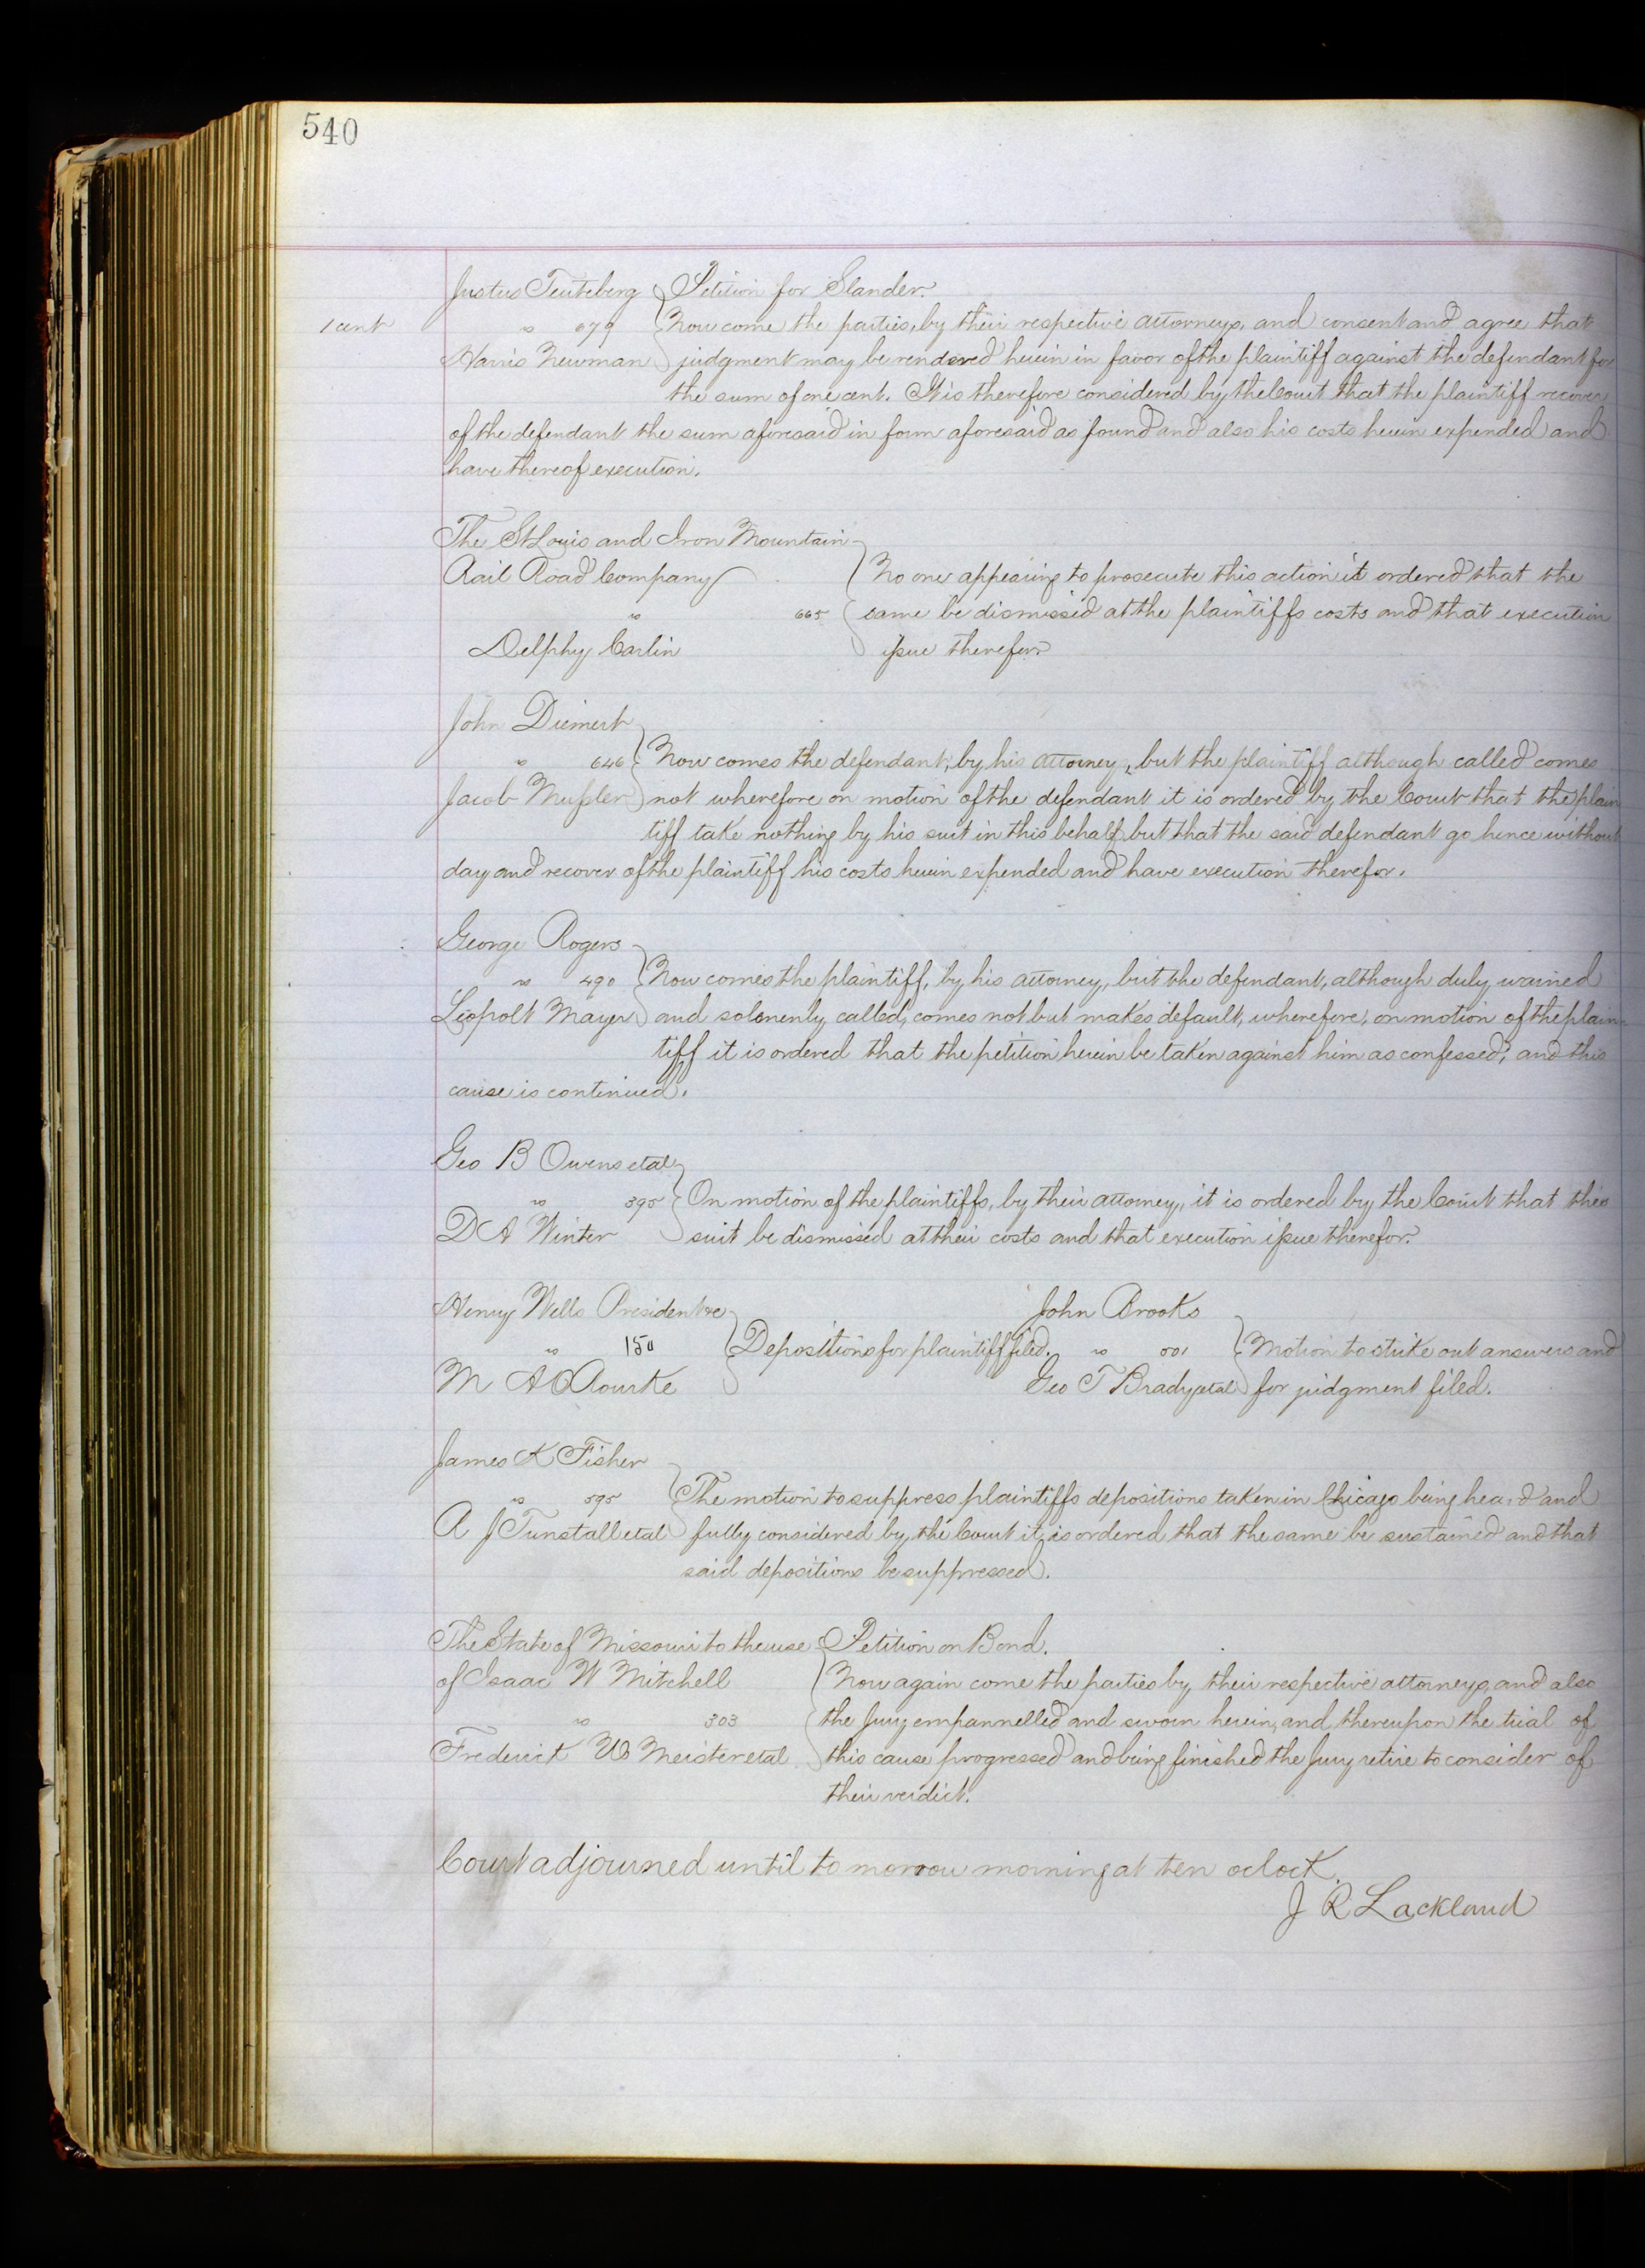 540
Justus Teuteberg } Petition for Slander.
1 cent vs 679 } Now come the parties, by their respective attorneys, and consent and agree that
Harris Newman } judgment may be rendered herein in favor of the plaintiff against the defendant for
the sum of one cent. It is therefore considered by the Court that the plaintiff recover
of the defendant the sum aforesaid in form aforesaid as found and also his costs herein expended and
have thereof execution.
The St Louis and Iron Mountain
Rail Road Company } No one appearing to prosecute this action it ordered that the
vs 665 } same be dismissed at the plaintiffs costs and that execution
Delphy Carlin } issue therefor.
John Diemert
vs 646 } Now comes the defendant, by his attorney, but the plaintiff although called comes
Jacob Mussler } not wherefore on motion of the defendant it is ordered by the Court that the plain
tiff take nothing by his suit in this behalf, but that the said defendant go hence without
day and recover of the plaintiff his costs herein expended and have execution therefor.
George Rogers
vs 490 } Now comes the plaintiff, by his attorney, but the defendant, although duly warned
Leopolt Mayer } and solemnly called, comes not but makes default, wherefore, on motion of the plain-
tiff it is ordered that the petition herein be taken against him as confessed, and this
cause is continued.
Geo B Owens et al
vs 395 } On motion of the plaintiffs, by their attorney, it is ordered by the Court that this
D A Winter } suit be dismissed at their costs and that execution issue therefor.
Henry Wells President &c
vs 150 } Depositions for plaintiff filed.
M A ORourke
John Brooks
vs 501 } Motion to strike out answers and
Geo T Brady et al } for judgment filed.
James K Fisher
vs 595 } The motion to suppress plaintiffs depositions taken in Chicago being heard and
A J Tunstall et al } fully considered by the Court it is ordered that the same be sustained and that
said depositions be suppressed.
The State of Missouri to the use } Petition on Bond.
of Isaac W Mitchell } Now again come the parties by their respective attorneys, and also
vs 303 } the Jury empannelled and sworn herein, and thereupon the trial of
Frederick W Meister et al } this cause progressed and being finished the Jury retire to consider of
their verdict.
Court adjourned until to morrow morning at ten oclock.
J R Lackland